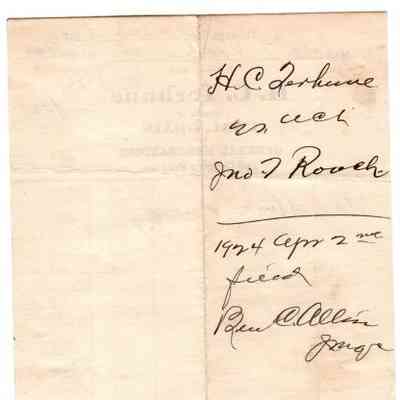 H. C. Terhune
vs
Jno T Roach
1924 Apr 2nd
filed
Ben C. Allin
Judge